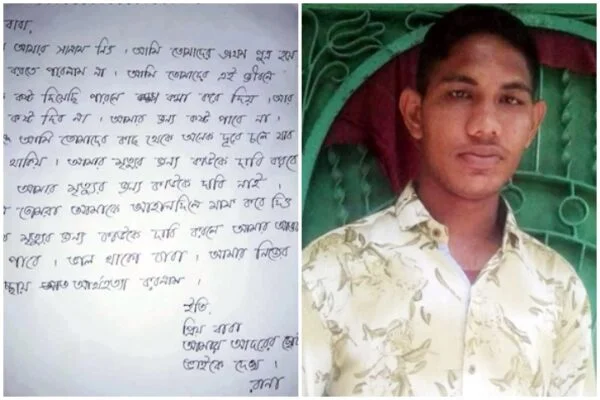 বাবা,
আমার সালাম নিও। আমি তোমাদের প্রথম পুত্র হয়ে
করতে পারলাম না। আমি তোমাদের এই জীবনে
কষ্ট দিয়েছি পারলে ক্ষমা করে দিয়। আর
কষ্ট দিব না। আমার জন্য কষ্ট পাবে না।
আমি তোমাদের কাছ থেকে অনেক দূরে চলে যাব
থাকিয়। আমার মৃত্যুর জন্য কাউকে দাবি করবে
আমার মৃত্যুর জন্য কাউকে দাবি নাই।
তোমরা আমাকে মাফ করে দিও
মৃত্যুর জন্য কাউকে দাবি করলে আমার আত্মা
পাবে। ভাল থাকো বাবা। আমার নিজের
আত্মহত্যা করলাম।
ইতি,
প্রিয় বাবা
আমার আদরের ছোট
ভাইকে দেখো।
রানা